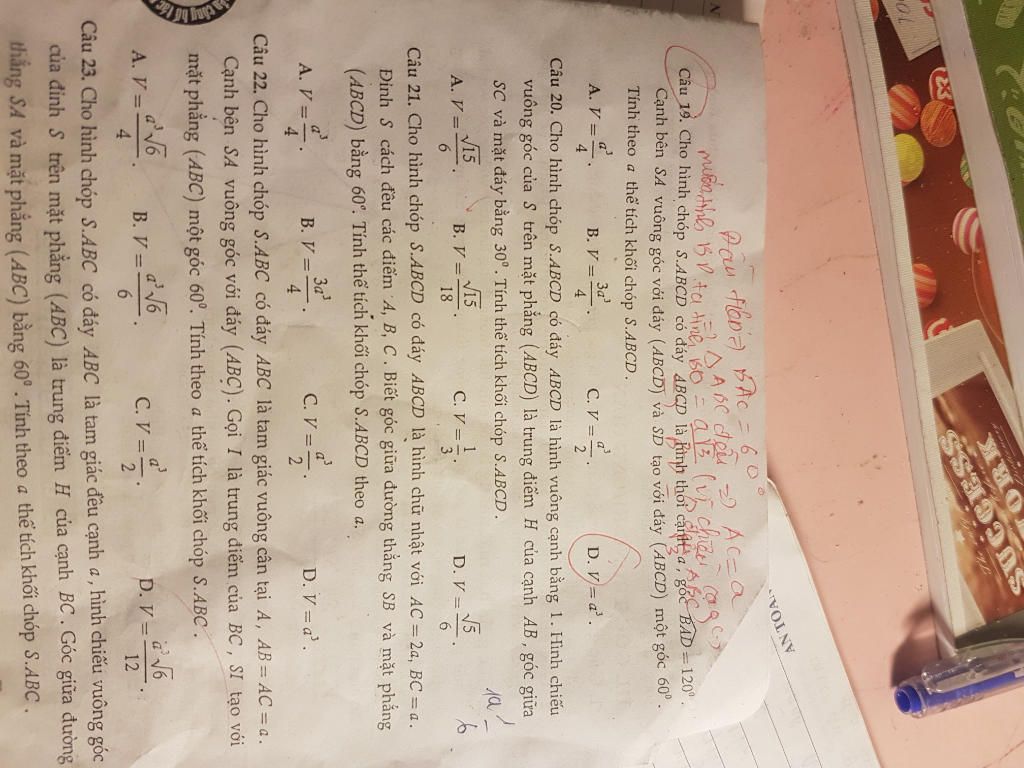 Đầu tiên => BAC = 60°
=> △ ABC đều => AC = a
muốn tính BD ta tính BO = a√3
Câu 19. Cho hình chóp S.ABCD có đáy ABCD là hình thoi cạnh a, góc BAD = 120⁰.
Cạnh bên SA vuông góc với đáy (ABCD) và SD tạo với đáy (ABCD) một góc 60⁰.
Tính theo a thể tích khối chóp S.ABCD.
A. V = a³/4. B. V = 3a³/4. C. V = a³/2. D. V = a³.
Câu 20. Cho hình chóp S.ABCD có đáy ABCD là hình vuông cạnh bằng 1. Hình chiếu
vuông góc của S trên mặt phẳng (ABCD) là trung điểm H của cạnh AB, góc giữa
SC và mặt đáy bằng 30⁰. Tính thể tích khối chóp S.ABCD.
A. V = √15/6. B. V = √15/18. C. V = 1/3. D. V = √5/6.
Câu 21. Cho hình chóp S.ABCD có đáy ABCD là hình chữ nhật với AC = 2a, BC = a.
Đỉnh S cách đều các điểm A, B, C. Biết góc giữa đường thẳng SB và mặt phẳng
(ABCD) bằng 60⁰. Tính thể tích khối chóp S.ABCD theo a.
A. V = a³/4. B. V = 3a³/4. C. V = a³/2. D. V = a³.
Câu 22. Cho hình chóp S.ABC có đáy ABC là tam giác vuông cân tại A, AB = AC = a.
Cạnh bên SA vuông góc với đáy (ABC). Gọi I là trung điểm của BC, SI tạo với
mặt phẳng (ABC) một góc 60⁰. Tính theo a thể tích khối chóp S.ABC.
A. V = a³√6/4. B. V = a³√6/6. C. V = a³/2. D. V = a³√6/12.
Câu 23. Cho hình chóp S.ABC có đáy ABC là tam giác đều cạnh a, hình chiếu vuông góc
của đỉnh S trên mặt phẳng (ABC) là trung điểm H của cạnh BC. Góc giữa đường
thẳng SA và mặt phẳng (ABC) bằng 60⁰. Tính theo a thể tích khối chóp S.ABC.
AN TOA
SUCCESS
WORK